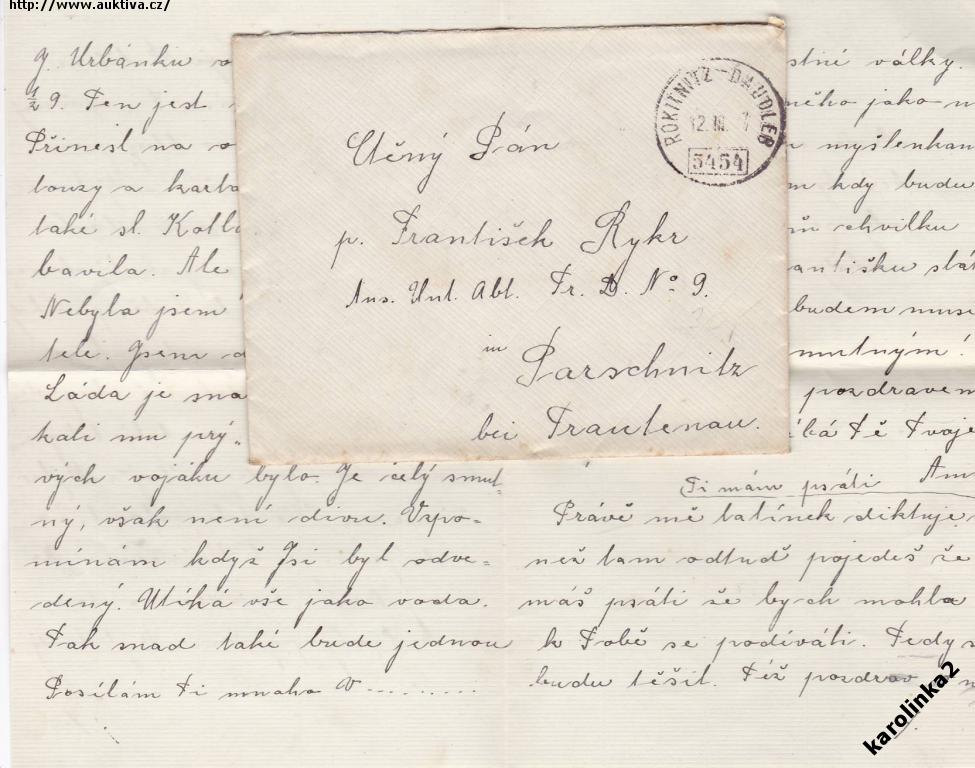 http://www.auktiva.cz/
J. Urbánku
1/2 9. Ten jest
Přinesl na
touzy a karba
také sl. Kolla
bavila. Ale
Nebyla jsem
tele. Jsem
Láda je sma
kali mu prý,
vých vojáku bylo. Je čělý smut-
ný, však není divu. Vzpo-
mínám když Jsi byl odve-
dený. Utíká vše jako voda.
Tak snad také bude jednou
Posílám Ti mnoho V..........
Ctěný Pán
p. František Rykr
Aus. Unt. Abt. Tr. D. No 9.
in
Parschnitz
bei Trautenau.
ROKITNITZ-DAUDLEB
12. III. 7
5454
stné války.
ného jako
myšlenkam
m kdy budu
chvilku
antišku stá
budem muse
mutným!
pozdravem
ibá Tě Tvoje
Ti mám psáti Am
Právě mě tatínek diktuje
než tam odtuď pojedeš že
máš psáti že bych mohla
k Tobě se podíváti. Tedy s
budu těšit. Též pozdrav
karolinka2